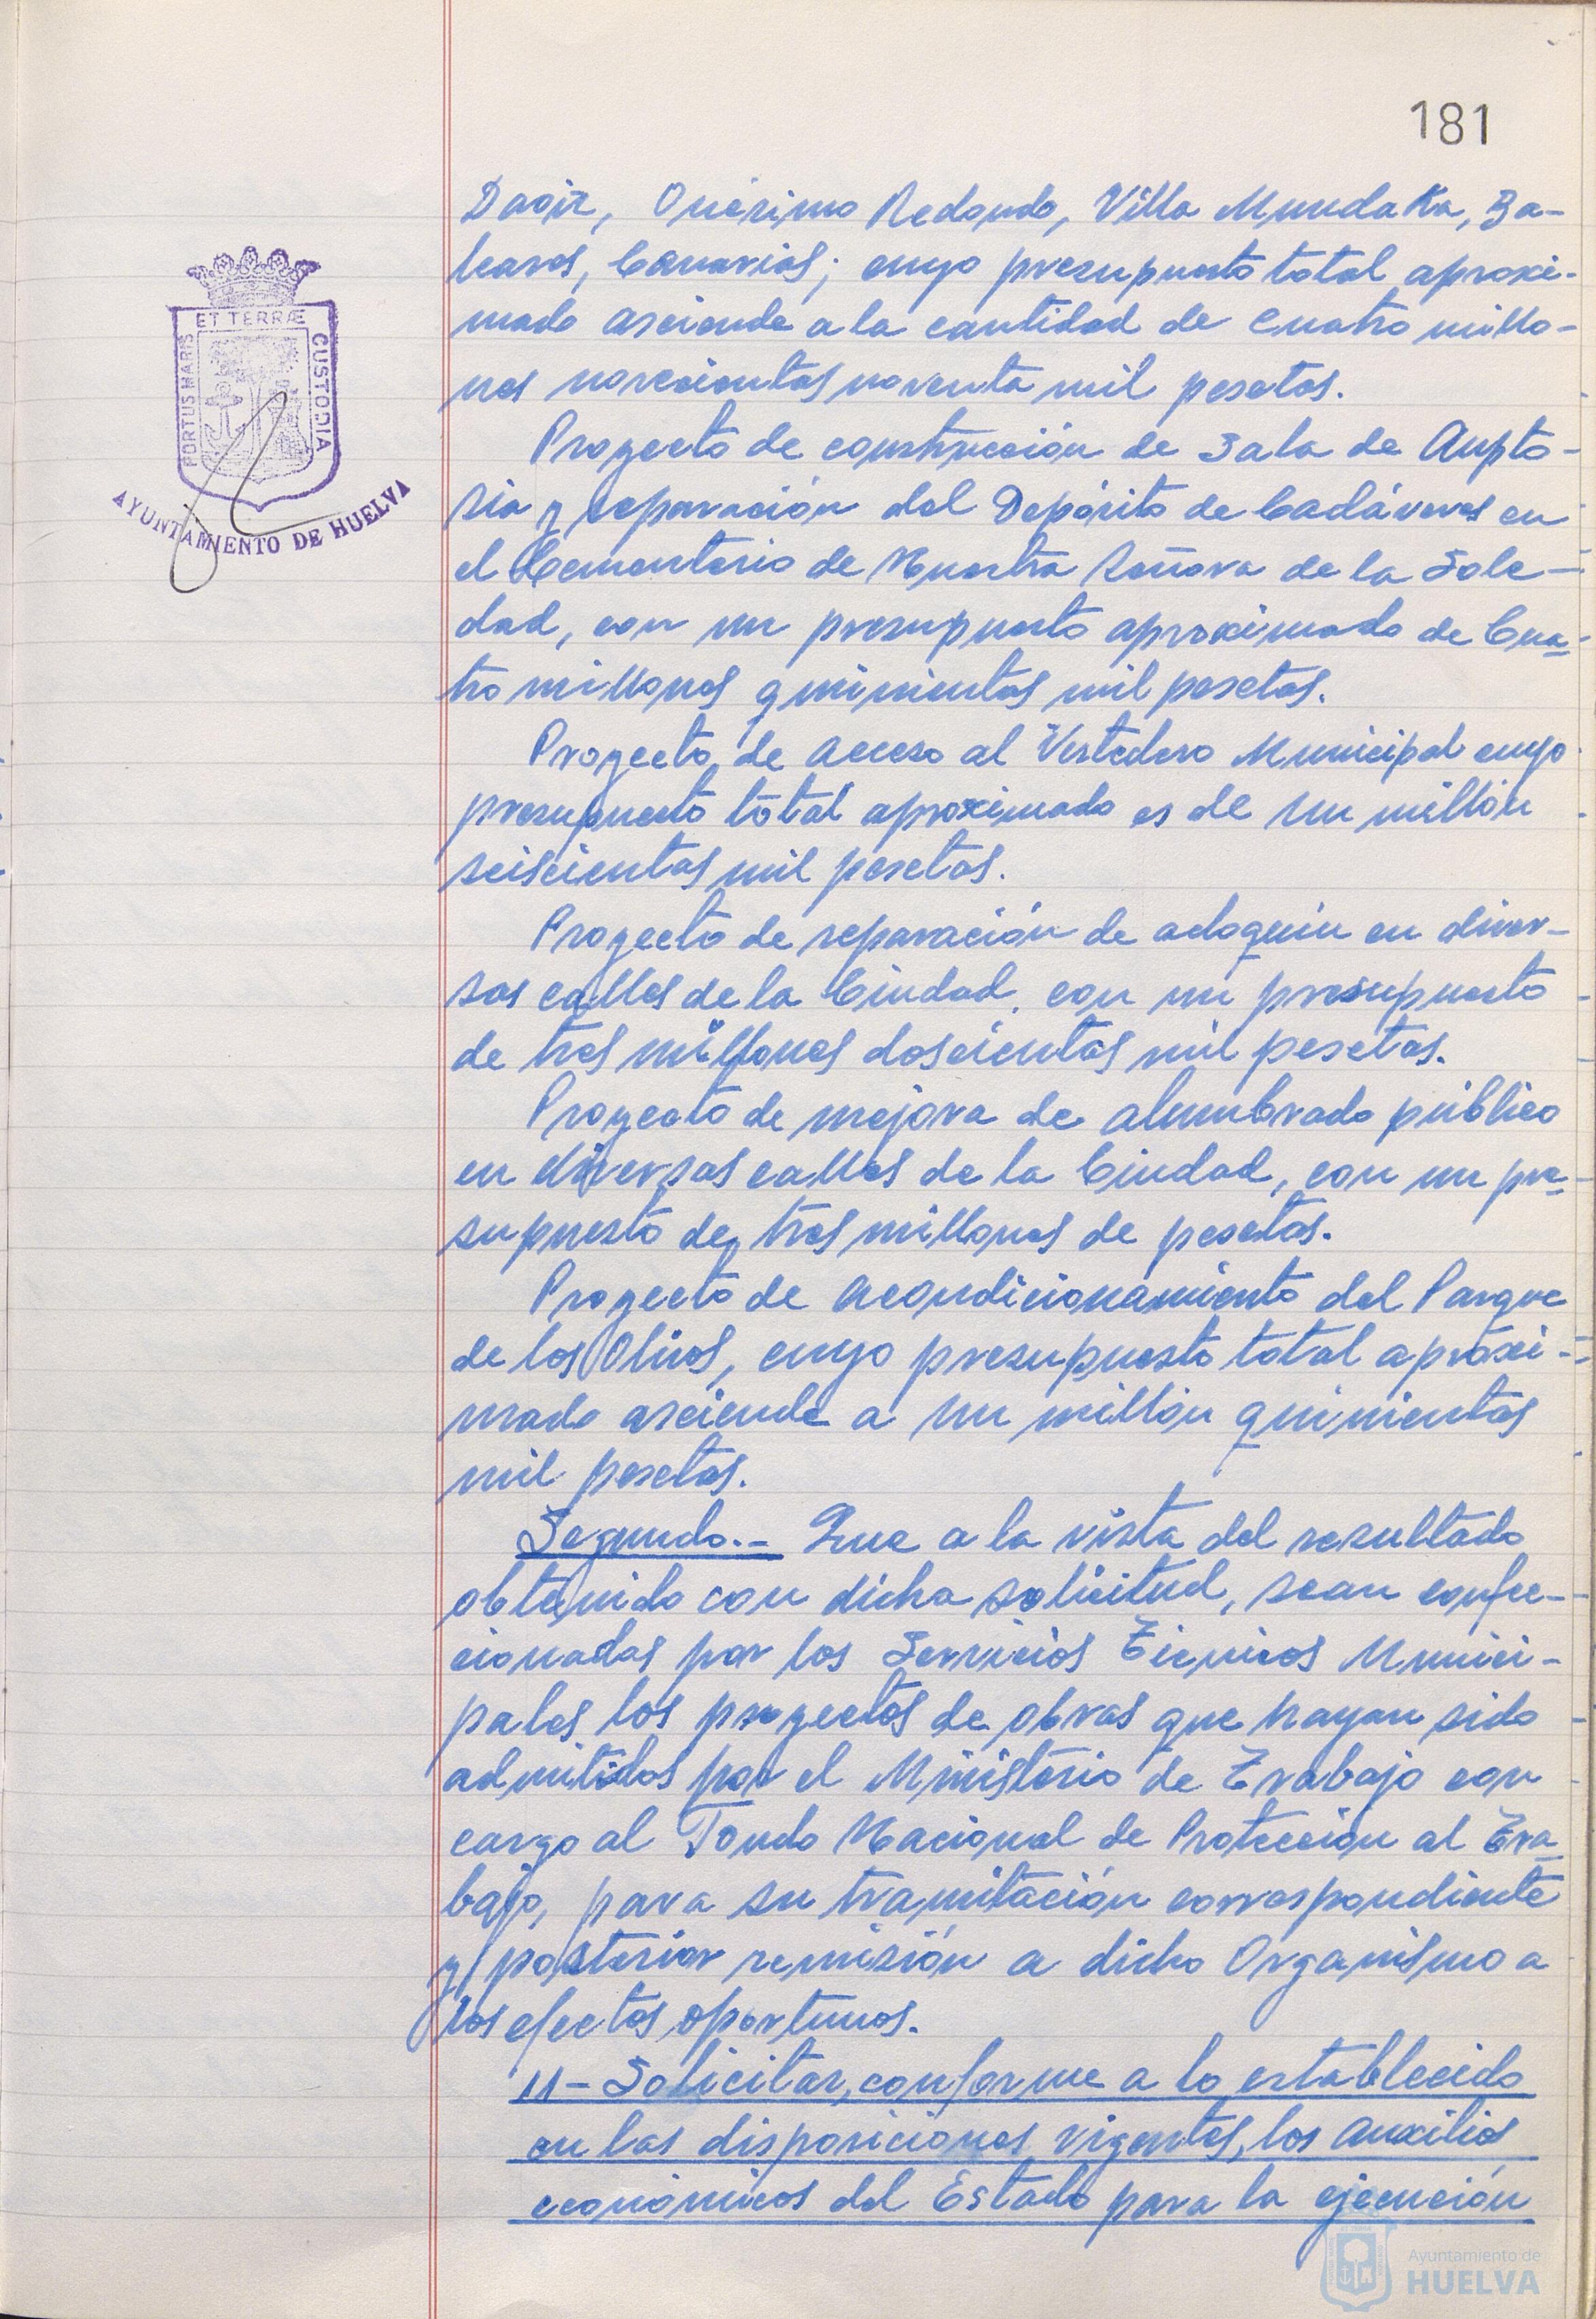 181
Daoiz, Onésimo Redondo, Villa Mundaka, Ba-
leares, Canarias; cuyo presupuesto total aproxi-
mado asciende a la cantidad de cuatro millo-
nes novecientas noventa mil pesetas.
Proyecto de construcción de Sala de Aupto-
sia y reparación del Depósito de Cadáveres en
el Cementerio de Nuestra Señora de la Sole-
dad, con un presupuesto aproximado de Cua-
tro millones quinientas mil pesetas.
Proyecto de acceso al Vertedero Municipal cuyo
presupuesto total aproximado es de un millón
seiscientas mil pesetas.
Proyecto de reparación de adoquín en diver-
sas calles de la Ciudad, con un presupuesto
de tres millones doscientas mil pesetas.
Proyecto de mejora de alumbrado público
en diversas calles de la Ciudad, con un pre-
supuesto de tres millones de pesetas.
Proyecto de acondicionamiento del Parque
de los Olivos, cuyo presupuesto total aproxi-
mado asciende a un millón quinientas
mil pesetas.
Segundo.- Que a la vista del resultado
obtenido con dicha solicitud, sean confec-
cionadas por los Servicios Técnicos Munici-
pales los proyectos de obras que hayan sido
admitidos por el Ministerio de Trabajo con
cargo al Fondo Nacional de Protección al Tra-
bajo, para su tramitación correspondiente
y posterior remisión a dicho Organismo a
los efectos oportunos.
11- Solicitar, conforme a lo establecido
en las disposiciones vigentes, los auxilios
económicos del Estado para la ejecución
PORTUS MARIS
ET TERRÆ
CUSTODIA
AYUNTAMIENTO DE HUELVA
Ayuntamiento de
HUELVA